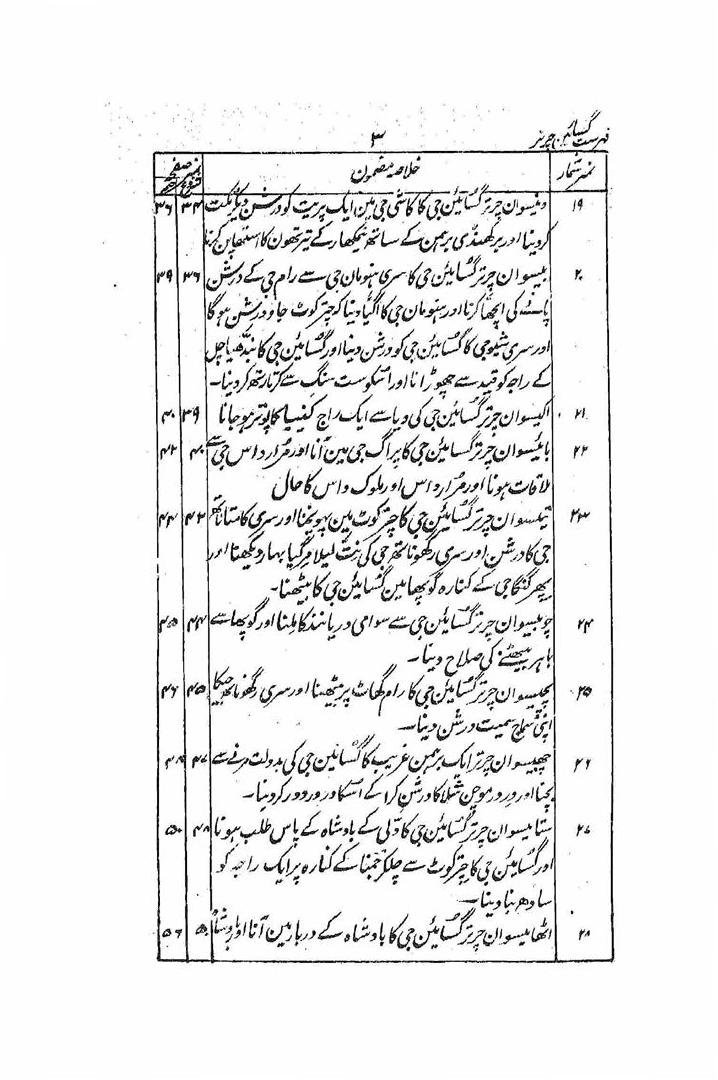 فہرست گسائین چرتر
۳
نمبر شمار خلاصہ مضمون نمبر صفحہ
۱۹ ونیسوان چرتر گسائین جی کا کاشی جی مین ایک پریت کو درشن دیکر مکت ۳۴ ۳۶
کر دینا اور برکھنڈی برہمن کے ساتھ نیمکھار کے تیرتھون کا استھاپن کرنا
۲۰ بیسوان چرتر گسائین جی کا سری ہنومان جی سے رام جی کے درشن ۳۶ ۳۹
پانے کی اچھا کرنا اور ہنومان جی کا اگیا دینا کہ چترکوٹ جاؤ درشن ہوگا
اور سری شیوجی کا گسائین جی کو درشن دینا اور گسائین جی کا بندھیاچل
کے راجہ کو قید سے چھوڑانا اور اسکو ست سنگ سے کرتارتھ کر دینا۔
۲۱ اکیسوان چرتر گسائین جی کی دیا سے ایک راج کنیا کا پوتر ہو جانا ۳۹ ۴۰
۲۲ بائیسوان چرتر گسائین جی کا پراگ جی مین آنا اور مرارداس جی سے ۴۰ ۴۲
ملاقات ہونا اور مرارداس اور ملوک داس کا حال
۲۳ تیئسوان چرتر گسائین جی کا چترکوٹ مین پہونچنا اور سری کامتاناتھ ۴۲ ۴۴
جی کا درشن اور سری رگھوناتھ جی کی نت لیلا مرگیا بہار دیکھنا اور
پھر گنگا جی کے کنارہ گوپھا مین گسائین جی کا بیٹھنا۔
۲۴ چوبیسوان چرتر گسائین جی سے سوامی دریانند کا ملنا اور گوپھا سے ۴۴ ۴۵
باہر بیٹھنے کی صلاح دینا۔
۲۵ پچیسوان چرتر گسائین جی کا رام گھاٹ پر بیٹھنا اور سری رگھوناتھ جیکا ۴۵ ۴۶
اپنی سماج سمیت درشن دینا۔
۲۶ چھبیسوان چرتر ایک برہمن غریب کا گسائین جی کی بدولت مرنے سے ۴۷ ۴۸
بچنا اور دردر موچن شلا کا درشن کرا کے اسکا دردر دور کر دینا۔
۲۷ ستائیسوان چرتر گسائین جی کا دلی کے بادشاہ کے پاس طلب ہونا ۴۸ ۵۰
اور گسائین جی کا چترکوٹ سے چلکر جمنا کے کنارہ پر ایک راجہ کو
سادھ بنا دینا۔
۲۸ اٹھائیسوان چرتر گسائین جی کا بادشاہ کے دربار مین آنا اور بادشاہ ۵۰ ۵۶